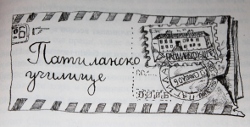 Патиланско
училище